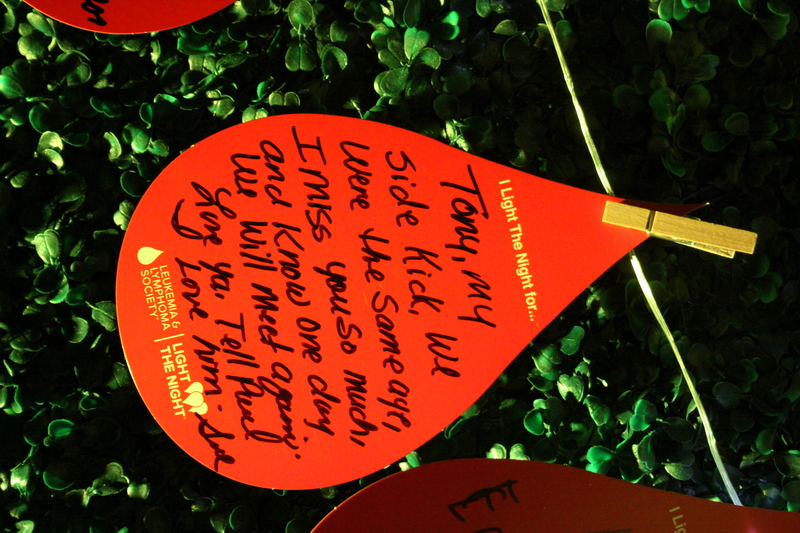 I Light The Night for...
Tony, my
Side Kick, We
Were the Same age,
I miss you so much,
and Know one day
We Will meet again.
Love ya, Tell Paul
I Love him.
LEUKEMIA &
LYMPHOMA
SOCIETY
LIGHT
THE NIGHT
I Lig